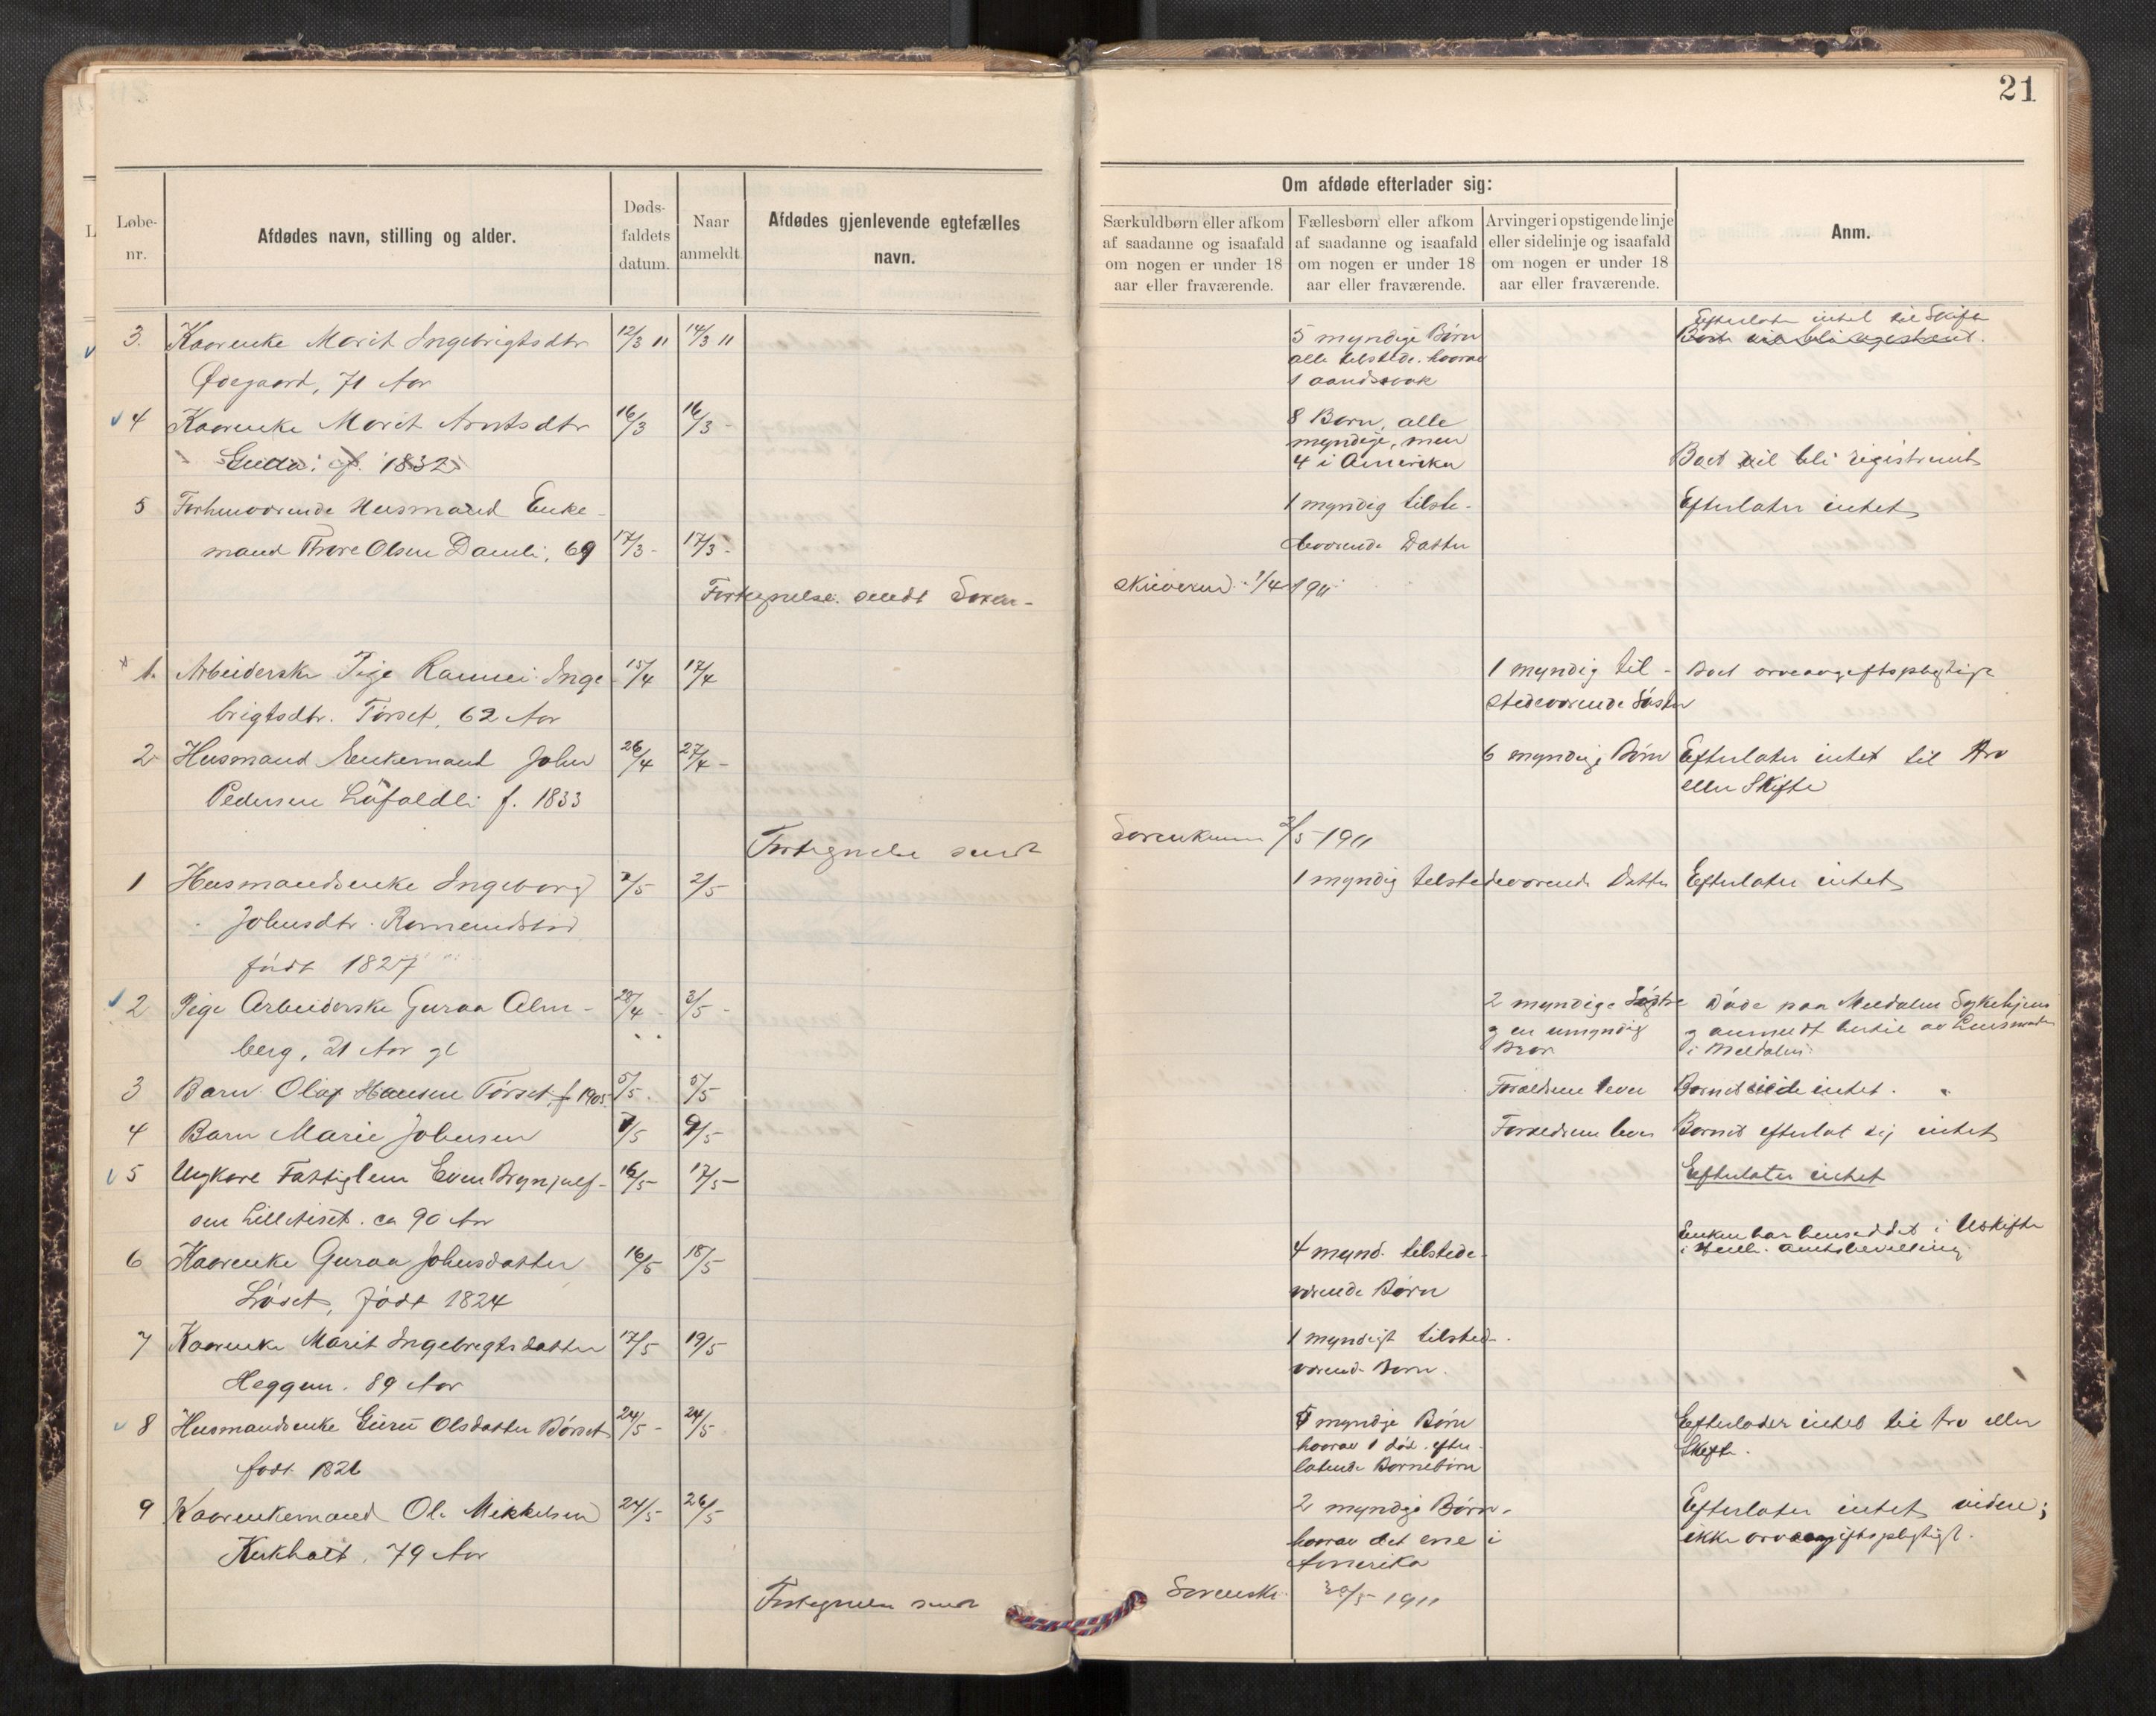 21
Løbe-
nr.
Afdødes navn, stilling og alder.
Døds-
faldets
datum.
Naar
anmeldt.
Afdødes gjenlevende egtefælles
navn.
Om afdøde efterlader sig:
Særkuldbørn eller afkom
af saadanne og isaafald
om nogen er under 18
aar eller fraværende.
Fællesbørn eller afkom
af saadanne og isaafald
om nogen er under 18
aar eller fraværende.
Arvinger i opstigende linje
eller sidelinje og isaafald
om nogen er under 18
aar eller fraværende.
Anm.
3. Kaarenke Marit Ingebrigtsdtr 12/3 11 14/3 11 5 myndige Børn Efterlater intet til Skifte
Ødegaard, 71 Aar alle tilstede. hvorav
1 aandssvak
4 Kaarenke Marit Arntsdtr 16/3 16/3 - 8 Børn, alle
f. 1832 myndige, men
4 i Amerika Boet vil bli registreret
5 Forhenværende Husmand Enke- 1 myndig tilste- Efterlater intet
mand Thore Olsen Damli, 69 17/3 - 17/3 - deværende Datter
Fortegnelse sendt Soren- skriveren 1/4 1911
1. Arbeiderske Pige Rannei Inge- 15/4 17/4 1 myndig til- Boet arveavgiftspligtige
brigtsdtr. Tørset, 62 Aar stedeværende Søster
2 Husmand Enkemand John 26/4 27/4 - 6 myndige Børn Efterlater intet til Arv
Pedersen Løfaldli f. 1833 eller Skifte
Fortegnelse sendt Sorenskriveren 2/5 1911
1 Husmandsenke Ingeborg 2/5 2/5 1 myndig tilstedeværende Datter Efterlater intet
Johnsdtr. Romundstad
født 1827
2 Pige Arbeiderske Guraa Alm- 28/4 - 3/5 - 2 myndige Søstre Døde paa Meldalen Sykehjem
berg, 21 Aar gl og en umyndig og anmeldt hertil av Lensmanden
Bror i Meldalen.
3 Barn Olaf Hansen Tørset f. 1905 5/5 . 5/5 Forældrene lever Barnet eide intet.
4 Barn Marie Johnsen 7/5 9/5 Forældrene lever Barnet efterlot sig intet
5 Ungkare Fattiglem Even Brynjulf- 16/5 17/5 - Efterlater intet
sen Lilletiset. ca 90 Aar
6 Kaarenke Guraa Johnsdatter 16/5 18/5 4 mynd. tilstede- Enken har hensiddet i Uskifte
Løset, født 1824 værende Børn i Henh. amtsbevilling
7 Kaarenke Marit Ingebrigtsdatter 17/5 19/5 1 myndigt tilstede-
Heggem. 89 Aar værende Barn.
8 Husmandsenke Guru Olsdatter Børset 24/5 - 24/5 5 myndige Børn Efterlader intet til Arv eller
født 1826 hvorav 1 død. efter- Skifte.
latende Barnebørn
9 Kaarenkemand Ole Mikkelsen 24/5 - 26/5 2 myndige Børn, Efterlater intet videre;
Kirkholt, 79 Aar hvorav det ene i ikke arveavgiftspligtigt.
Amerika
Fortegnelse sendt Sorenskr. 30/5 1911